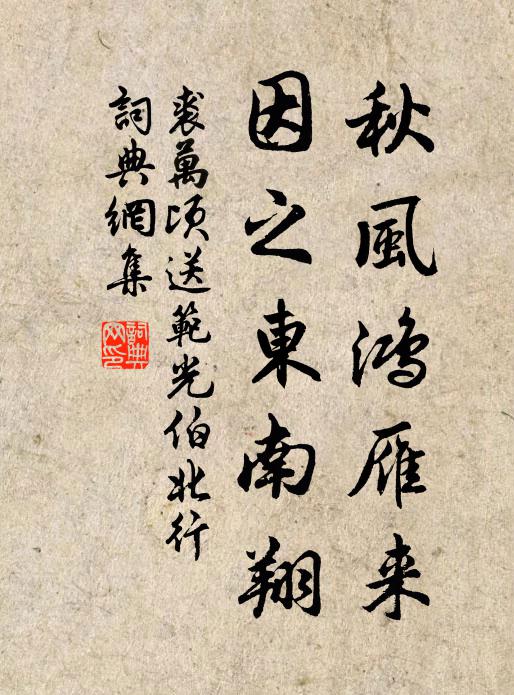 秋風鴻雁来
因之東南翔
裘萬頃送範光伯北行
詞典網集
詞典网印